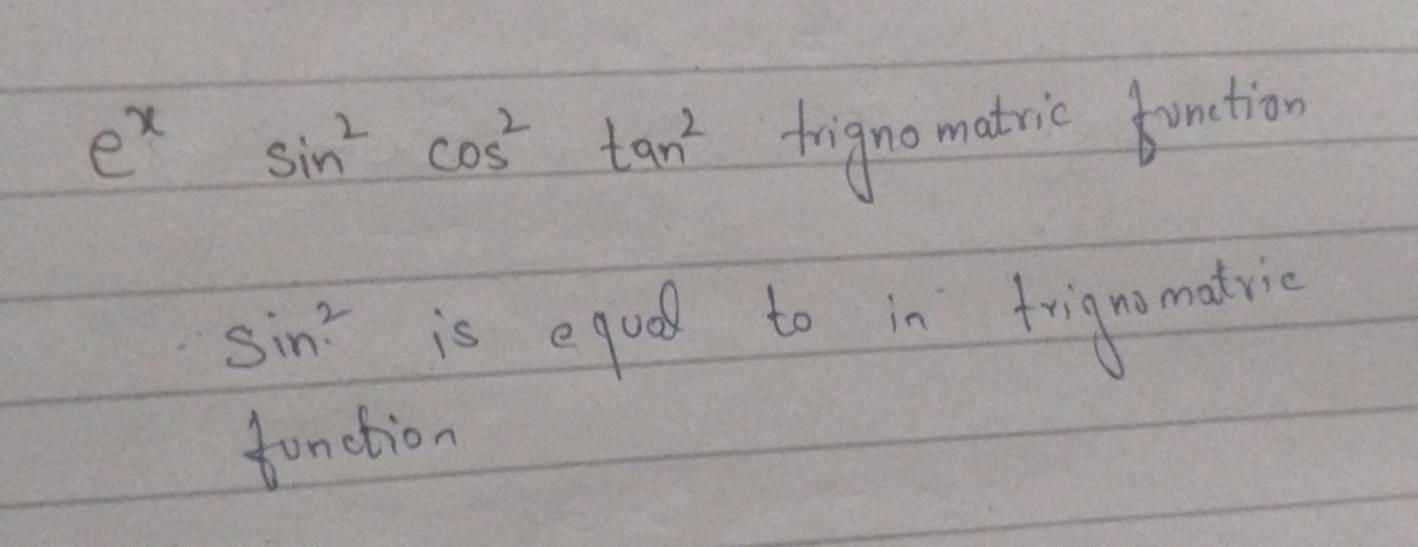 e^x sin² cos² tan² trignomatric function
sin² is equal to in trignomatric
function